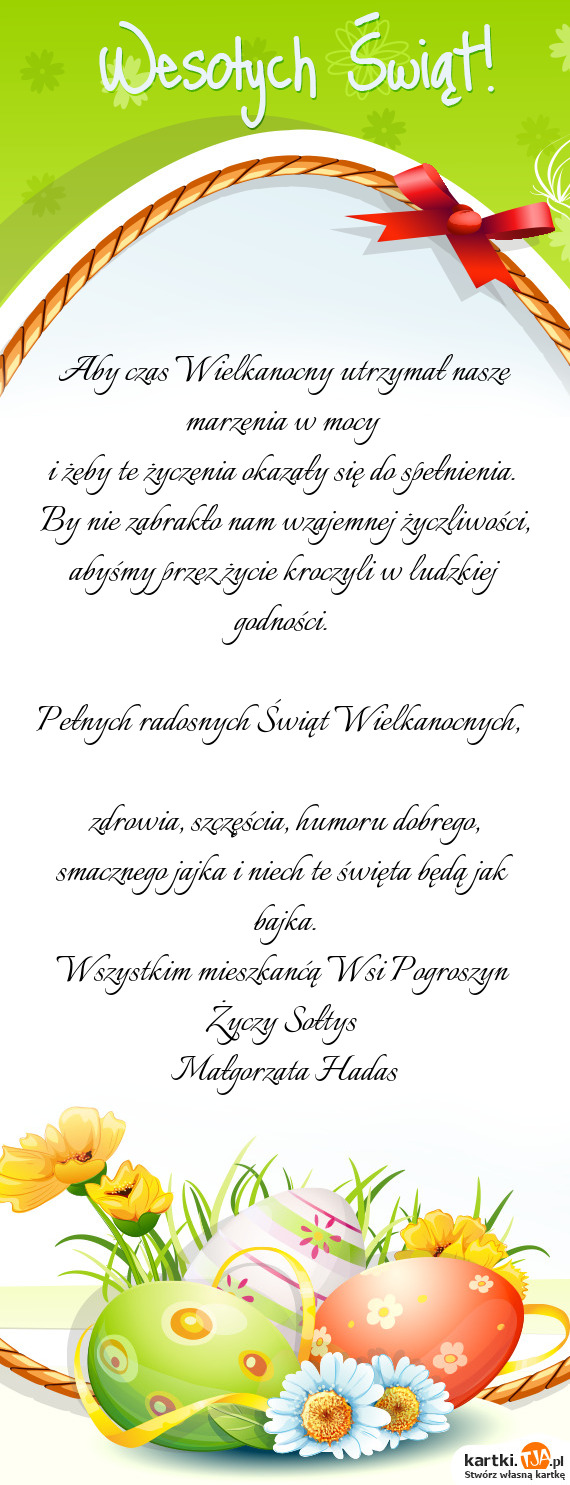 Wesołych Świąt!
Aby czas Wielkanocny utrzymał nasze
marzenia w mocy
i żeby te życzenia okazały się do spełnienia.
By nie zabrakło nam wzajemnej życzliwości,
abyśmy przez życie kroczyli w ludzkiej
godności.
Pełnych radosnych Świąt Wielkanocnych,
zdrowia, szczęścia, humoru dobrego,
smacznego jajka i niech te święta będą jak
bajka.
Wszystkim mieszkańćą Wsi Pogroszyn
Życzy Sołtys
Małgorzata Hadas
kartki.TJA.pl
Stwórz własną kartkę